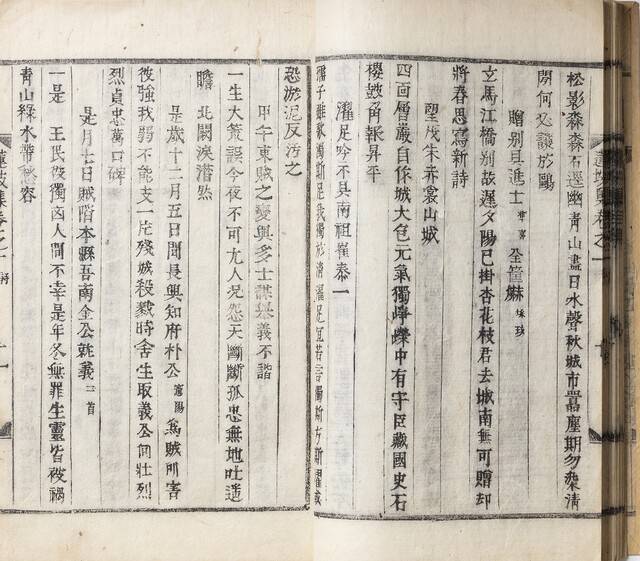 松影森森石逕幽青山盡日水聲秋城市囂塵期勿染清
閒何必讓於鷗
贈別 進士
立馬江橋別故遲夕陽已掛杏花枝君去城南無可贈却
將春思寫新詩
望茂朱赤裳山城
四面層巖自作城大包元氣獨崢嶸中有守臣藏國史石
樓鼓角報昇平
濯足吟示具南祖崔泰一
孺子雖歌獨斯足我獨於清濯足宜若吾獨斯方斯濯或
恐淤泥反汚之
甲午東賊之變與多士謀擧義不諧
一生大策誤今夜不可尤人況怨天斷斷孤忠無地吐遙
瞻 北闕淚潸然
是歲十二月五日聞長興知府朴公 憲陽 爲賊所害
彼強我弱不能支一片殘城殺戮時舍生取義公何壯烈
烈貞忠萬口碑
是月七日賊陷本縣吾南金公就義 二首
一是 王民彼獨凶人間不幸是年冬無罪生靈皆被禍
青山綠水帶愁容
蓮坡集卷之一